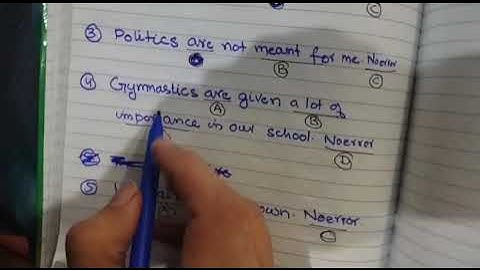 C
③ Politics are not meant for me. Noerror
B C
④ Gymnastics are given a lot of
A B
importance in our school. Noerror
D
⑤ own. Noerror.
C